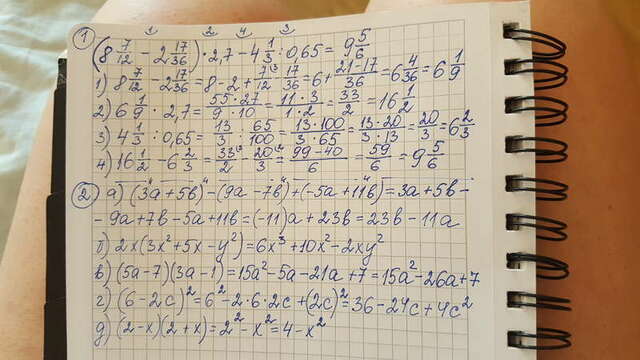 ① (8 7/12 - 2 17/36) · 2,7 - 4 1/3 : 0,65 = 9 5/6
1) 8 7/12 - 2 17/36 = 8 - 2 + 7/12 - 17/36 = 6 + (21-17)/36 = 6 4/36 = 6 1/9
2) 6 1/9 · 2,7 = (55·27)/(9·10) = (11·3)/2 = 33/2 = 16 1/2
3) 4 1/3 : 0,65 = 13/3 : 65/100 = (13·100)/(3·65) = (13·20)/(3·13) = 20/3 = 6 2/3
4) 16 1/2 - 6 2/3 = 33/2 - 20/3 = (99-40)/6 = 59/6 = 9 5/6
② а) (3a+5b) - (9a-7b) + (-5a+11b) = 3a+5b -
- 9a+7b - 5a+11b = (-11)a + 23b = 23b - 11a
б) 2x(3x²+5x-y²) = 6x³+10x²-2xy²
в) (5a-7)(3a-1) = 15a²-5a-21a+7 = 15a²-26a+7
г) (6-2c)² = 6²-2·6·2c+(2c)² = 36-24c+4c²
д) (2-x)(2+x) = 2²-x² = 4-x²